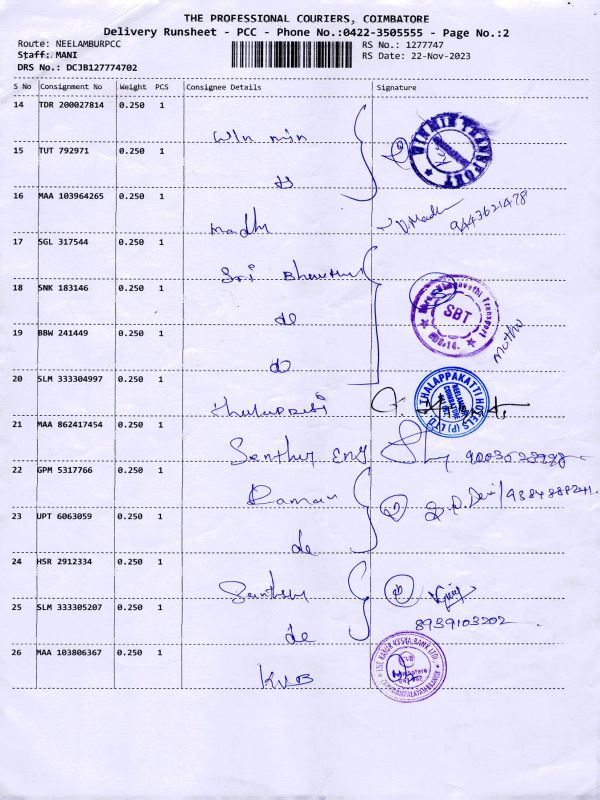 THE PROFESSIONAL COURIERS, COIMBATORE
Delivery Runsheet - PCC - Phone No.:0422-3505555 - Page No.:2
Route: NEELAMBURPCC
Staff: MANI
DRS No.: DCJB127774702
RS No.: 1277747
RS Date: 22-Nov-2023
S No Consignment No Weight PCS Consignee Details Signature
14 TDR 200027814 0.250 1
Win min
VINNIE TRANSPORT
15 TUT 792971 0.250 1
16 MAA 103964265 0.250 1
madhi
9443621478
17 SGL 317544 0.250 1
Sri
18 SNK 183146 0.250 1
SBT
Transport
do
Mothu
19 BBW 241449 0.250 1
do
20 SLM 333304997 0.250 1
THALAPPAKATTI HOTELS (P) LTD
NEELAMBUR
COIMBATORE
21 MAA 862417454 1
Senthur Eng
22 GPM 5317766 0.250 1
Raman
23 UPT 6063059 0.250 1
do
24 HSR 2912334 0.250 1
8939103202
25 SLM 333305207 0.250 1
do
26 MAA 103806367 0.250 1
KVB
THE KARUR VYSYA BANK LTD